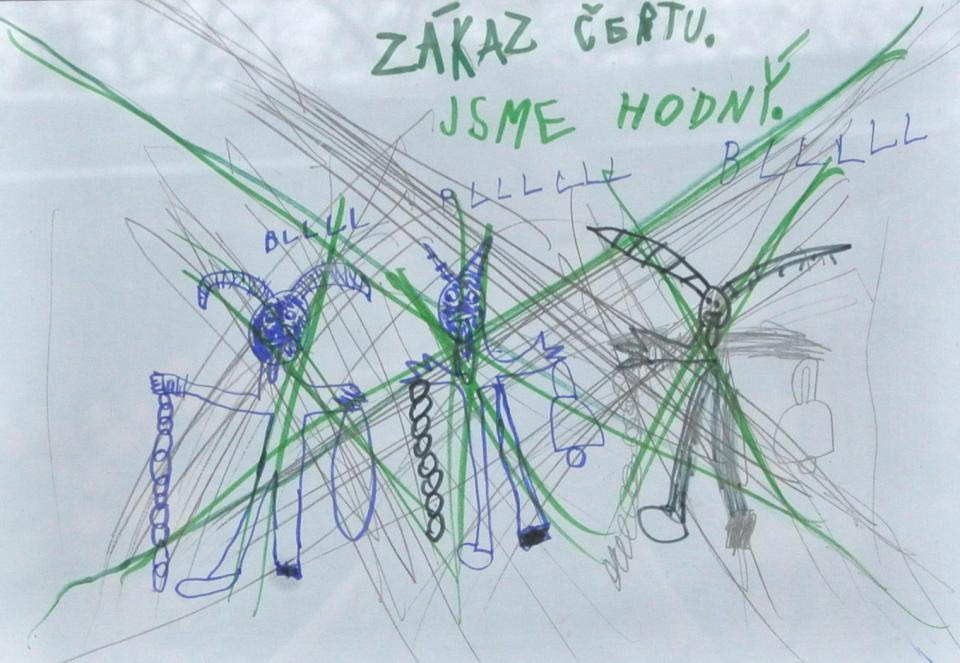 ZÁKAZ ČERTU.
JSME HODNÝ.
BLLLLL
BLLLLLL
BLLLLLL